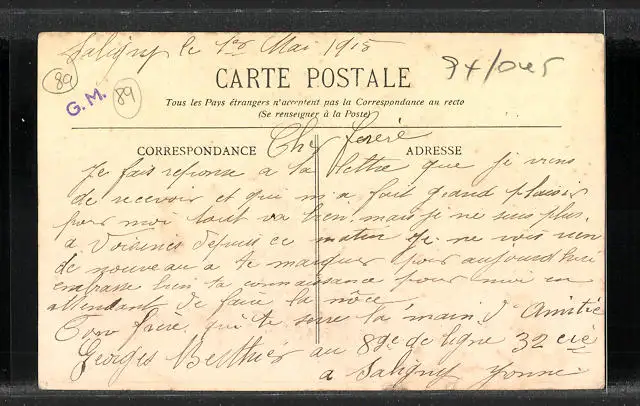 Saligny le 1er Mai 1915
CARTE POSTALE
Tous les Pays étrangers n'acceptent pas la Correspondance au recto
(Se renseigner à la Poste)
89
G. M.
89
CORRESPONDANCE
ADRESSE
Cher frère
Je fais reponse a ta lettre que je viens
de recevoir et qui m a fait grand plaisir
pour moi tout va bien, mais je ne suis plus
a Voisines depuis ce matin je ne vois rien
de nouveau a te marquer pour aujourdhui
embrasse bien ta connaissance pour moi en
attendant de faire la nôce
Ton frère qui te serre la main d'Amitié
Georges Berthier au 89e de ligne 32 cie
a Saligny Yonne